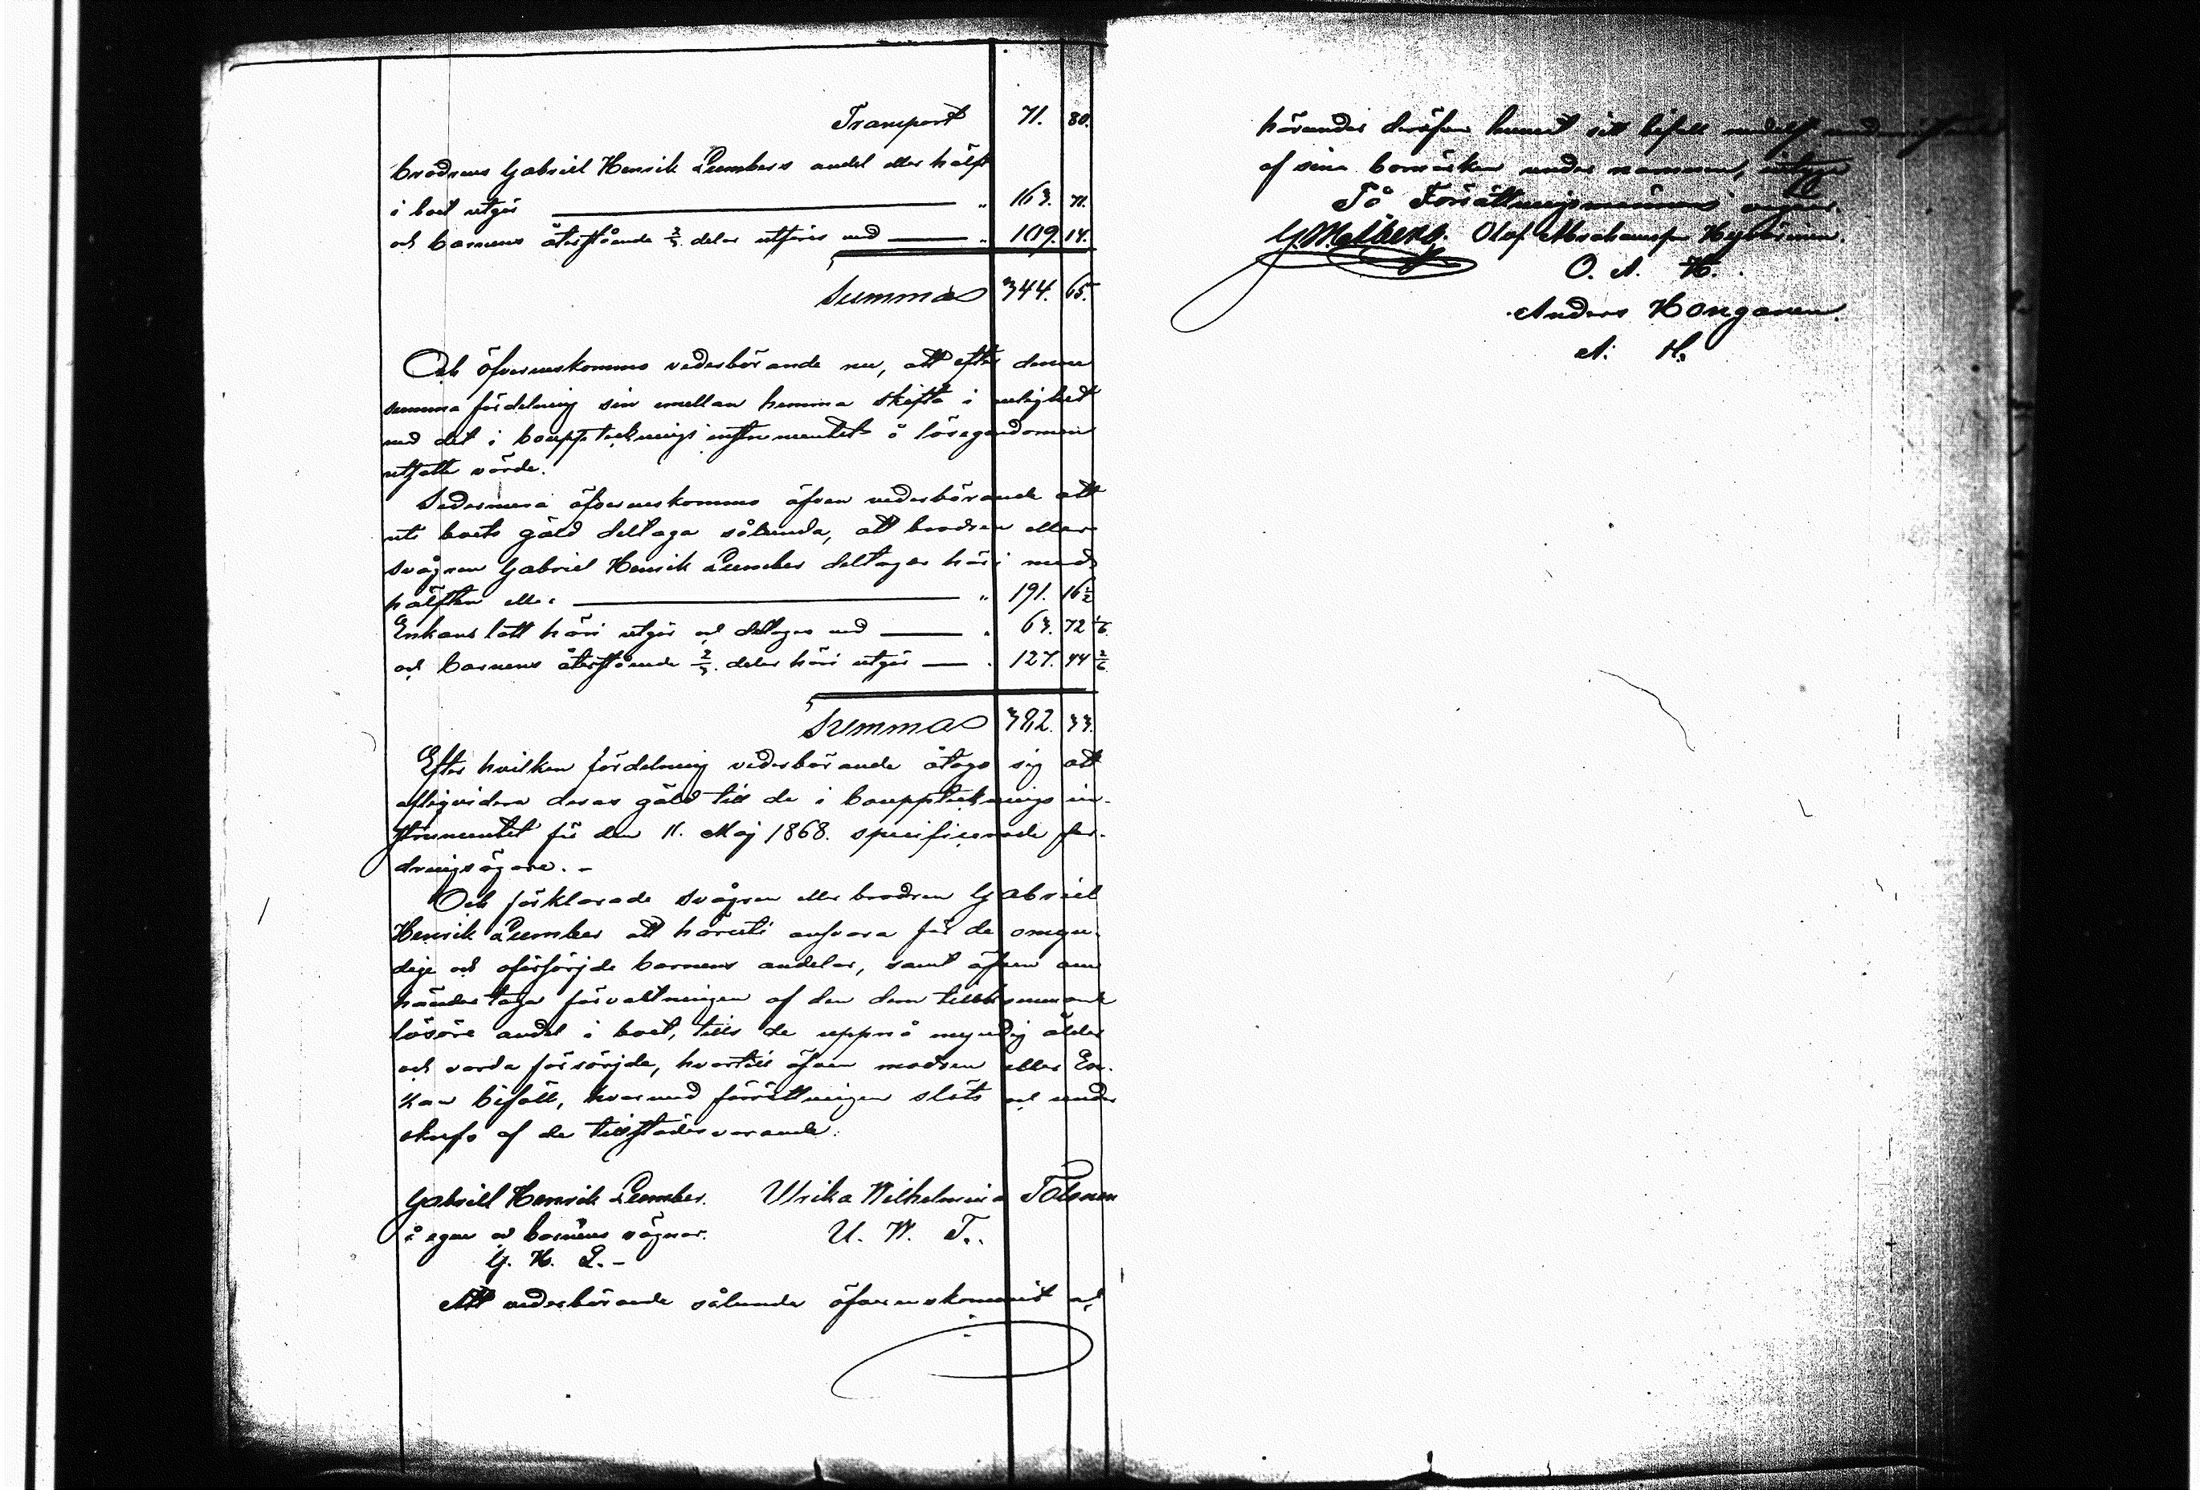 Transport 71. 80.
brodrens Gabriel Henrik Lumbers andel eller hälft
i boet utgör " 163. 71.
och barnens återstående 2/3 delar utföres med " 109. 14.
Summa 344. 65.
Och öfverenskommo vedesbörande nu, att efter denna
summa fördelning sin emellan hemma skifta i enlighet
med det i bouppteknings instrumentet å lösegendomen
utsatte värde.
Sedermera öfverenskommo äfven vedesbörande att
uti boets gäld deltaga sålunda, att brodren eller
svågren Gabriel Henrik Lumber deltager häri med
hälften eller " 191. 16 1/2
Enkans lott häri utgör och deltages med " 63. 72 1/6.
och barnens återstående 2/3 delar häri utgör " 127. 44 2/6.
Summa 382. 33.
Efter hvilken fördelning vedesbörande åtogo sig att
afliqvidera deras gäld till de i bouppteknings in-
strumentet för den 11. Maj 1868. specificerade for-
dringsägare. -
Och förklarade svågren eller brodren Gabriel
Henrik Lumber att häruti ansvara för de omyn-
dige och oförsörjde barnens andelar, samt äfven om
händertaga förvaltningen af den dem tillkommande
lösöre andel i boet, tills de uppnå myndig ålder
och varda försörjde, hvartill äfven modren eller En-
kan biföll, hvarmed förrättningen slöts och under
skrefs af de tillstädesvarande.
Gabriel Henrik Lumber. Ulrika Wilhelmina Tolonen
å egne och barnens vägnar. U. W. T.
G. H. L. -
Att vedesbörande sålunda öfverenskommit och
hörandes deröfver lemnat sitt bifall medelst
af sina bomärken under namnen, intyga
På Förrättningsmännens vägnar.
G. Melberg. Olof Abrahamsson
O. A. H.
Anders Honganen.
A. H.